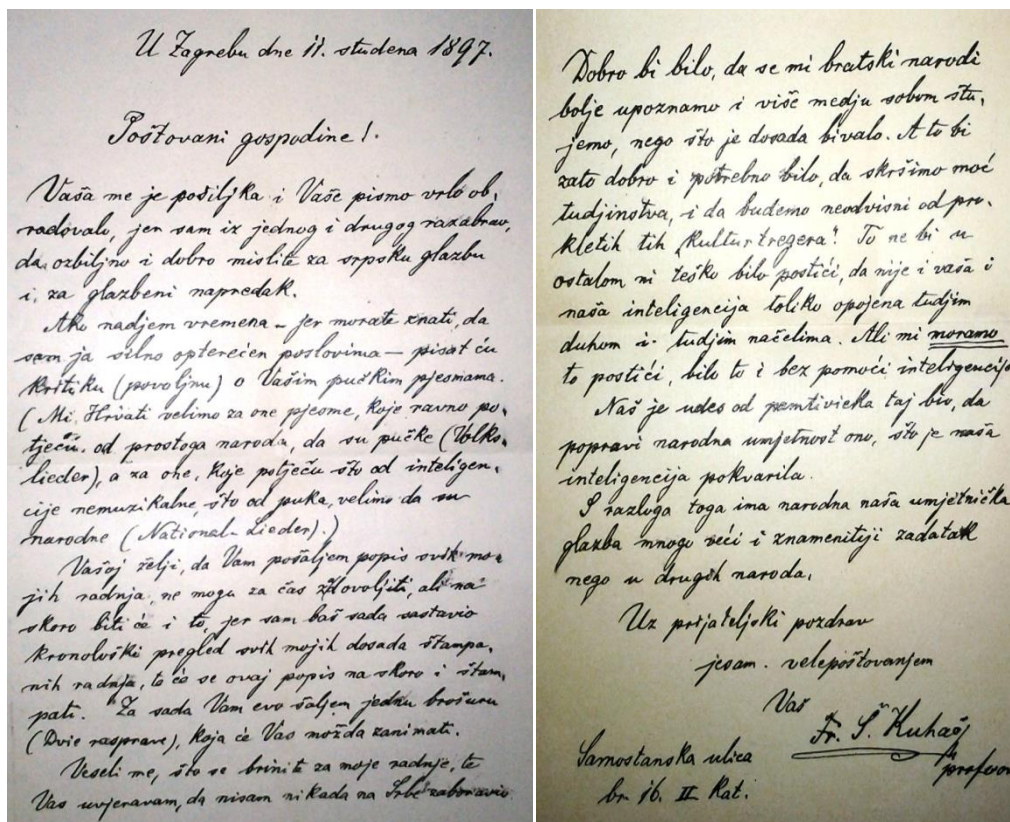 U Zagrebu dne 11. studena 1897.
Poštovani gospodine!
Vaša me je pošiljka i Vaše pismo vrlo ob-
radovalo, jer sam iz jednog i drugog razabrao,
da ozbiljno i dobro mislite za srpsku glazbu
i za glazbeni napredak.
Ako nadjem vremena – jer morate znati, da
sam ja silno opterećen poslovima – pisat ću
kritiku (povoljnu) o Vašim pučkim pjesmama.
(Mi Hrvati velimo za one pjesme, koje ravno po-
tječu od prostoga naroda, da su pučke (Volks-
lieder), a za one, koje potječu što od inteligen-
cije nemuzikalne, što od puka, velimo da su
narodne (National-Lieder).)
Vašoj želji, da Vam pošaljem popis svih mo-
jih radnja, ne mogu za čas zadovoljiti, ali na
skoro biti će i to, jer sam baš sada sastavio
kronološki pregled svih mojih dosada štampa-
nih radnja, te će se ovaj popis na skoro i štam-
pati. Za sada Vam evo šaljem jednu brošuru
(Dvie rasprave), koja će Vas možda zanimati.
Veseli me, što se brinite za moje radnje, te
Vas uvjeravam, da nisam nikada na Srbe zaboravio.
Dobro bi bilo, da se mi bratski narodi
bolje upoznamo i više medju sobom štu-
jemo, nego što je dosada bivalo. A to bi
zato dobro i potrebno bilo, da skršimo moć
tudjinstva, i da budemo neodvisni od pro-
kletih tih „Kulturtregera". To ne bi u
ostalom ni teško bilo postići, da nije i vaša i
naša inteligencija toliko opojena tudjim
duhom i tudjim načelima. Ali mi moramo
to postići, bilo to i bez pomoći inteligencije.
Naš je udes od pamtivieka taj bio, da
popravi narodna umjetnost ono, što je naša
inteligencija pokvarila.
S razloga toga ima narodna naša umjetnička
glazba mnogo veći i znamenitiji zadatak
nego u drugih naroda.
Uz prijateljski pozdrav
jesam velepoštovanjem
Vaš
Fr. Š. Kuhač
profesor
Samostanska ulica
br. 16. II kat.